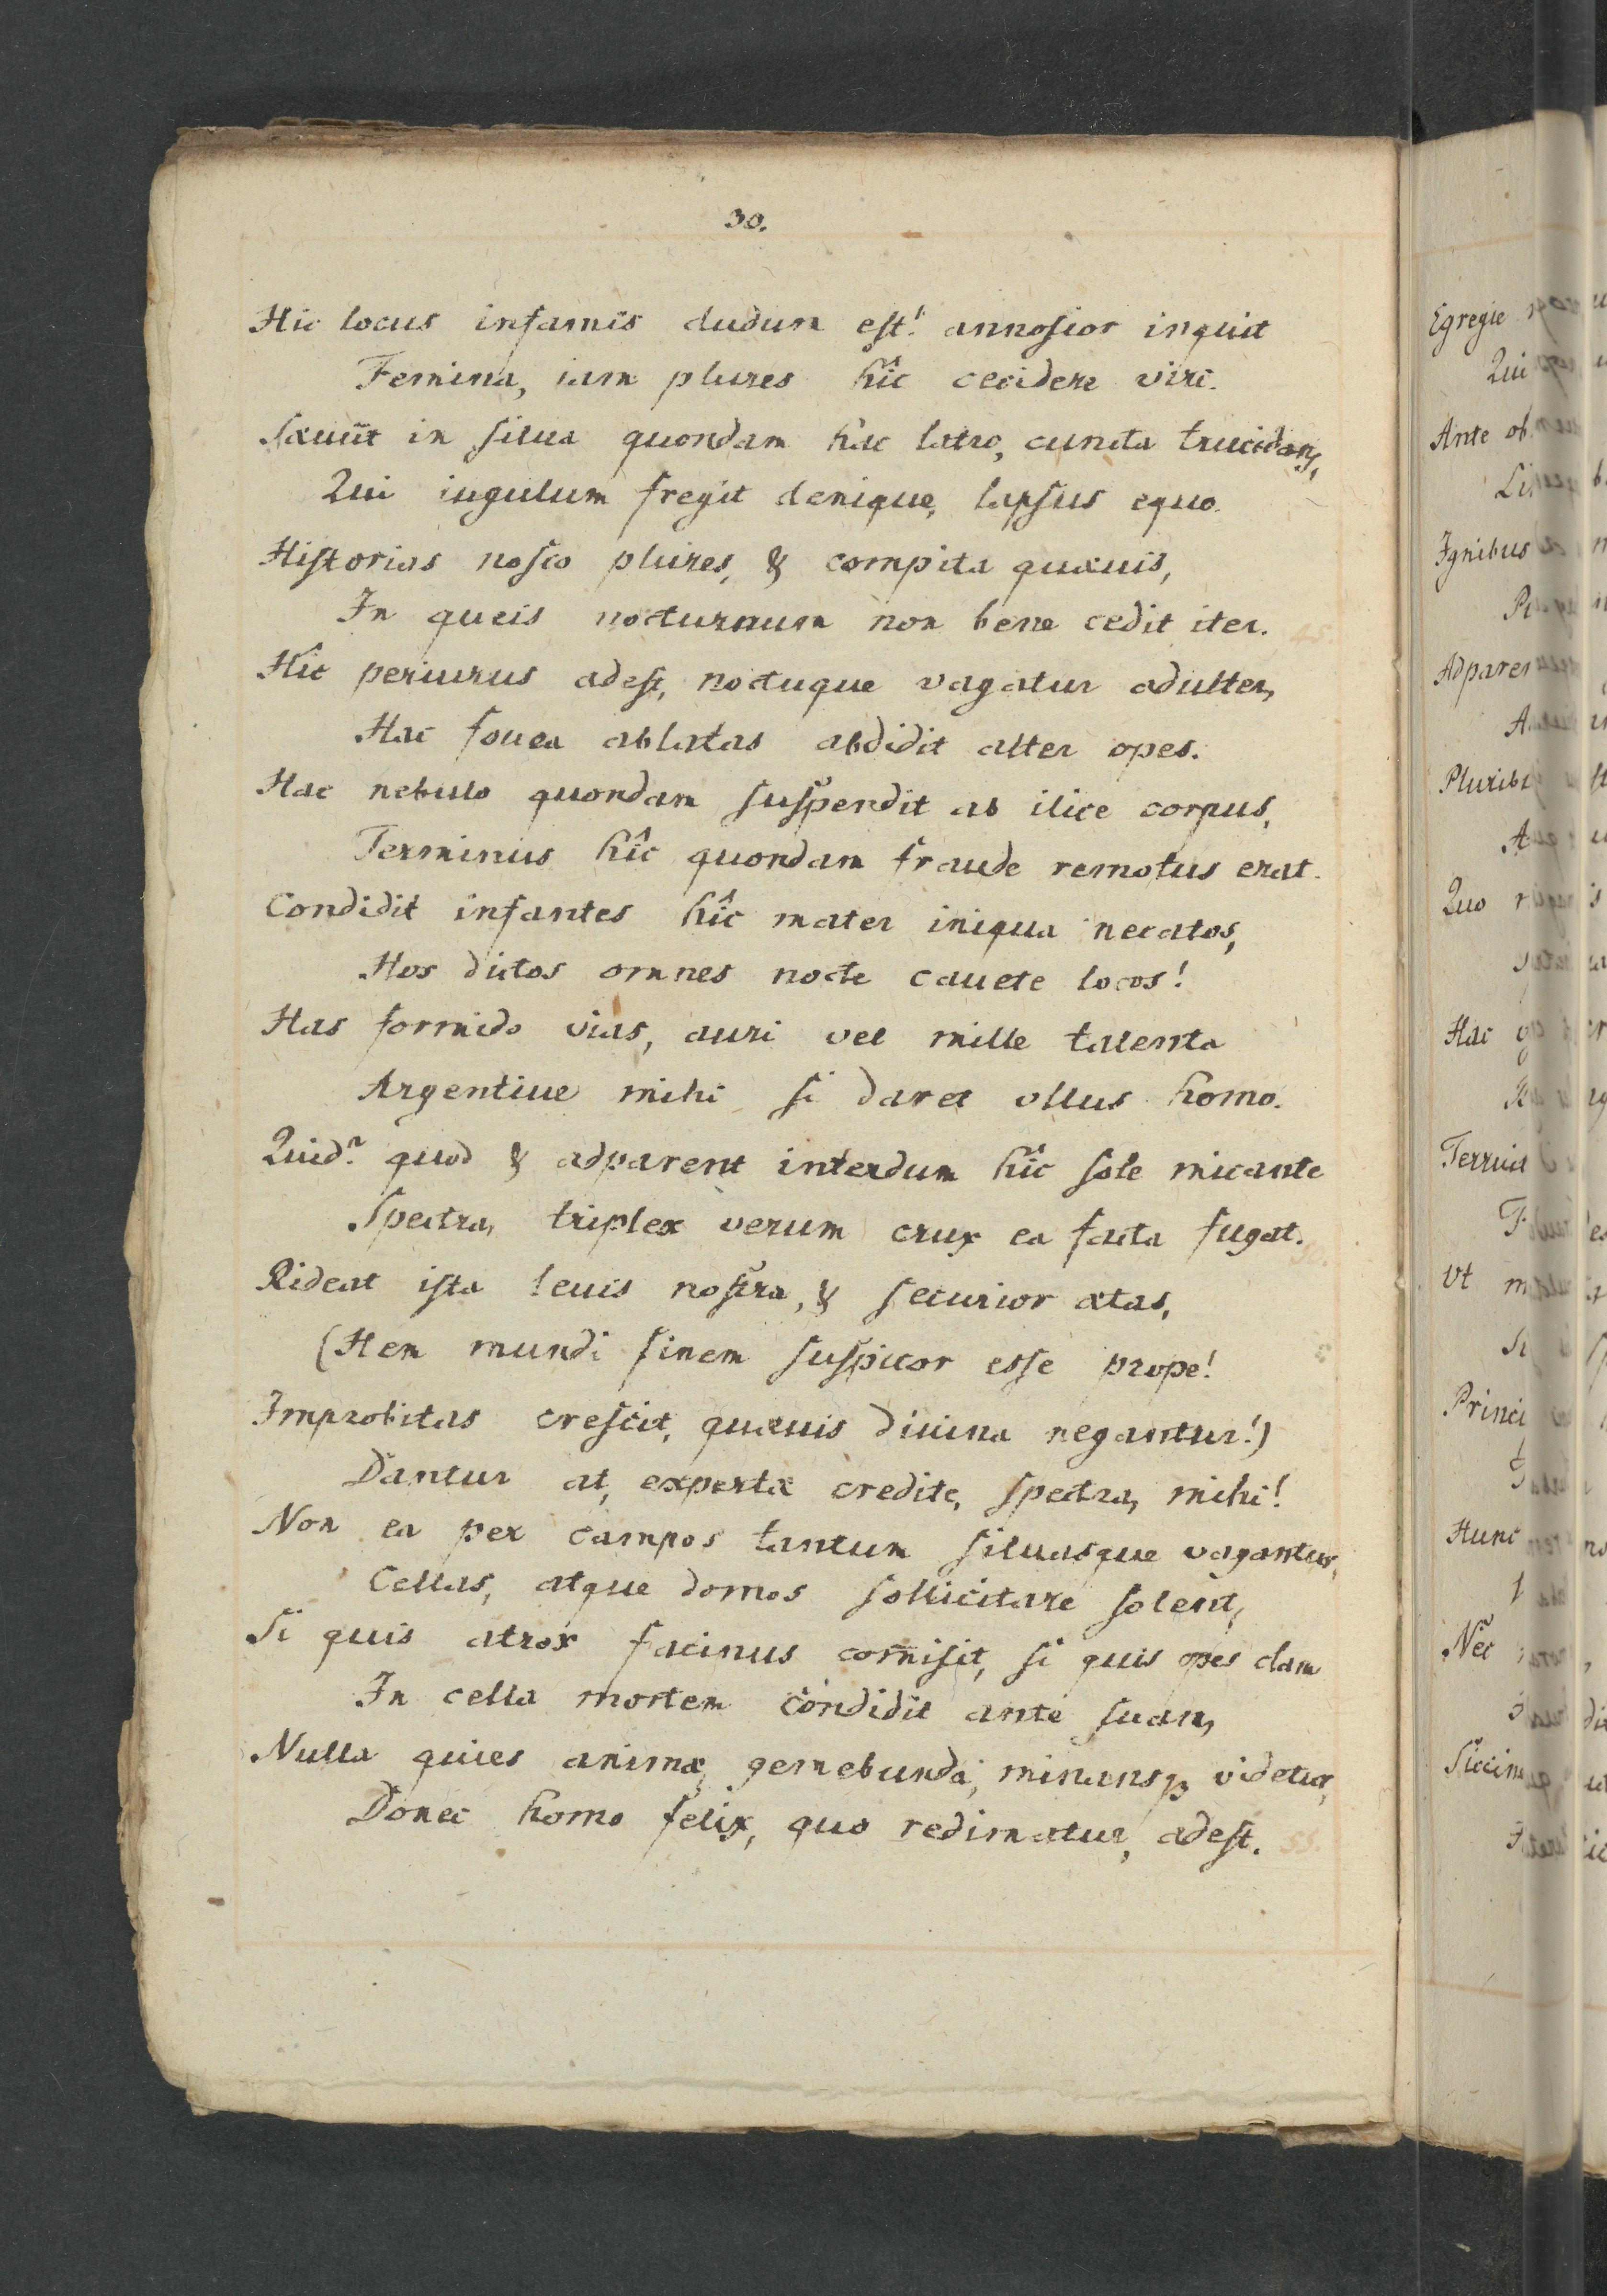 30.
Hic locus infamis dudum est! annosior inquit
Femina, iam plures hîc cecidere viri.
Sæuiit in silua quondam hac latro, cuncta trucidans,
Qui iugulum fregit denique, lapsus equo.
Historias nosco plures, & compita quæuis,
In queis nocturnum non bene cedit iter.
Hic periurus adest, noctuque vagatur adulter,
Hac fouea ablatas abdidit alter opes.
Hac nebulo quondam suspendit ab ilice corpus,
Terminus hîc quondam fraude remotus erat.
Condidit infantes hîc mater iniqua necatos,
Hos dictos omnes nocte cauete locos!
Has formido vias, auri vel mille talenta
Argentiue mihi si daret vllus homo.
Quid? quod & adparent interdum hîc sole micante
Spectra, triplex verum crux ea facta fugat.
Rideat ista leuis nostra, & securior ætas,
(Hem mundi finem suspicor esse prope!
Improbitas crescit, quæuis diuina negantur!)
Dantur at, expertæ credite, spectra, mihi!
Non ea per campos tantum siluasque vagantur,
Cellas, atque domos sollicitare solent,
Si quis atrox facinus com̄isit, si quis opes clam
In cella mortem condidit ante suam,
Nulla quies animæ, gemebunda, minansqꝫ videtur,
Donec homo felix, quo redimatur, adest.
45.
50.
55.
Egregie
Qui
Ante ob
Ignibus
Adparen
Pluribu
Quo
Hac
Terruit
Vt
Princi
Hunc
Nec
Siccine